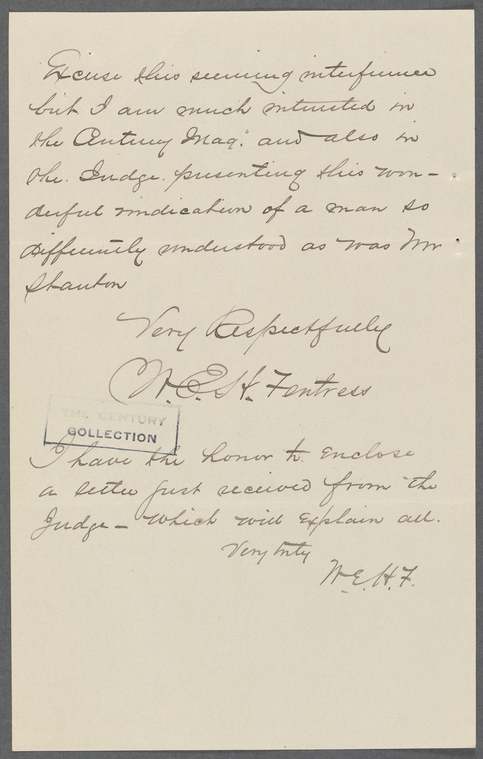 Excuse this seeming interference
but I am much interested in
the Century Mag." and also in
the Judge presenting this won-
derful vindication of a man so
differently understood as was Mr
Stanton
Very Respectfully
W. E. H. Fentress
THE CENTURY
COLLECTION
I have the honor to Enclose
a letter just received from "the
Judge - which will Explain all.
Very truly
W. E. H. F.